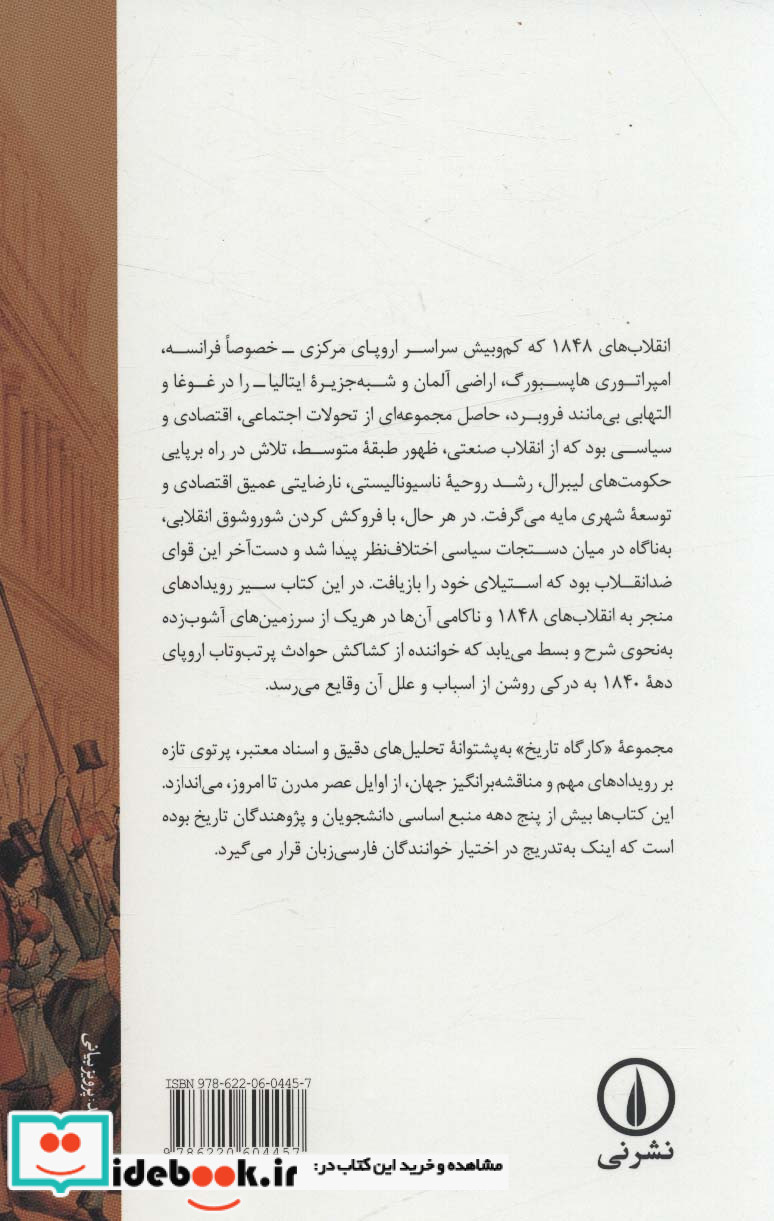 انقلاب‌های ۱۸۴۸ که کم‌وبیش سراسر اروپای مرکزی ــ خصوصاً فرانسه،
امپراتوری هاپسبورگ، اراضی آلمان و شبه‌جزیرهٔ ایتالیا ــ را در غوغا و
التهابی بی‌مانند فروبرد، حاصل مجموعه‌ای از تحولات اجتماعی، اقتصادی و
سیاسی بود که از انقلاب صنعتی، ظهور طبقهٔ متوسط، تلاش در راه برپایی
حکومت‌های لیبرال، رشد روحیهٔ ناسیونالیستی، نارضایتی عمیق اقتصادی و
توسعهٔ شهری مایه می‌گرفت. در هر حال، با فروکش کردن شوروشوق انقلابی،
به‌ناگاه در میان دستجات سیاسی اختلاف‌نظر پیدا شد و دست‌آخر این قوای
ضدانقلاب بود که استیلای خود را بازیافت. در این کتاب سیر رویدادهای
منجر به انقلاب‌های ۱۸۴۸ و ناکامی آن‌ها در هریک از سرزمین‌های آشوب‌زده
به‌نحوی شرح و بسط می‌یابد که خواننده از کشاکش حوادث پرتب‌وتاب اروپای
دههٔ ۱۸۴۰ به درکی روشن از اسباب و علل آن وقایع می‌رسد.
مجموعهٔ «کارگاه تاریخ» به‌پشتوانهٔ تحلیل‌های دقیق و اسناد معتبر، پرتوی تازه
بر رویدادهای مهم و مناقشه‌برانگیز جهان، از اوایل عصر مدرن تا امروز، می‌اندازد.
این کتاب‌ها بیش از پنج دهه منبع اساسی دانشجویان و پژوهندگان تاریخ بوده
است که اینک به‌تدریج در اختیار خوانندگان فارسی‌زبان قرار می‌گیرد.
پرویز بیانی
ISBN 978-622-06-0445-7
9 786220 604457
نشرنی
مشاهده و خرید این کتاب در:
idebook.ir